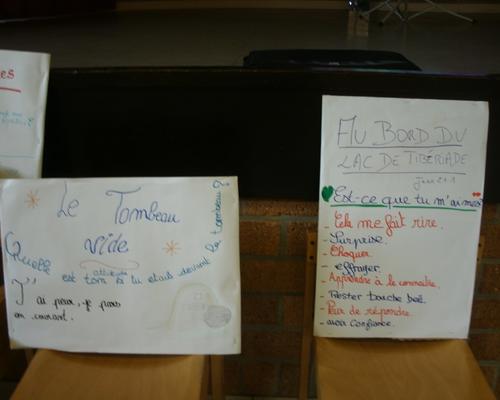 es
Le Tombeau
vide
Quelle attitude est ton si tu étais devant le tombeau ?
J'ai peur, je pars
en courant.
AU BORD DU
LAC DE TIBÉRIADE
Jean 21
Est-ce que tu m'aimes
- Cela me fait rire.
- Surprise.
- Choquer.
- effrayer.
- Apprendre à le connaître.
- Rester bouche bée.
- Peur de répondre.
- avoir confiance.